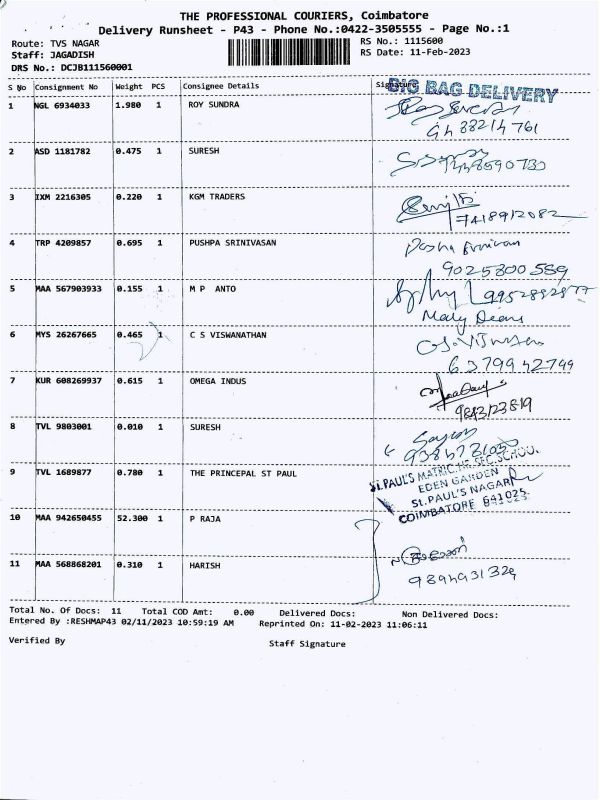 THE PROFESSIONAL COURIERS, Coimbatore
Delivery Runsheet - P43 - Phone No.:0422-3505555 - Page No.:1
Route: TVS NAGAR RS No.: 1115600
Staff: JAGADISH RS Date: 11-Feb-2023
DRS No.: DCJB111560001
S No Consignment No Weight PCS Consignee Details Signature
BIG BAG DELIVERY
1 NGL 6934033 1.980 1 ROY SUNDRA
2 ASD 1181782 0.475 1 SURESH
3 IXM 2216305 0.220 1 KGM TRADERS
7418912082
4 TRP 4209857 0.695 1 PUSHPA SRINIVASAN
9025800589
5 MAA 567903933 0.155 1 M P ANTO
Mary Deans
6 MYS 26267665 0.465 1 C S VISWANATHAN
6379942799
7 KUR 608269937 0.615 1 OMEGA INDUS
9843123819
8 TVL 9803001 0.010 1 SURESH
9 TVL 1689877 0.780 1 THE PRINCEPAL ST PAUL
St.PAUL'S MATRIC.HR.SEC.SCHOOL
EDEN GARDEN
St.PAUL'S NAGAR
COIMBATORE 641025.
10 MAA 942650455 52.300 1 P RAJA
11 MAA 568868201 0.310 1 HARISH
Total No. Of Docs: 11 Total COD Amt: 0.00 Delivered Docs: Non Delivered Docs:
Entered By :RESHMAP43 02/11/2023 10:59:19 AM Reprinted On: 11-02-2023 11:06:11
Verified By Staff Signature